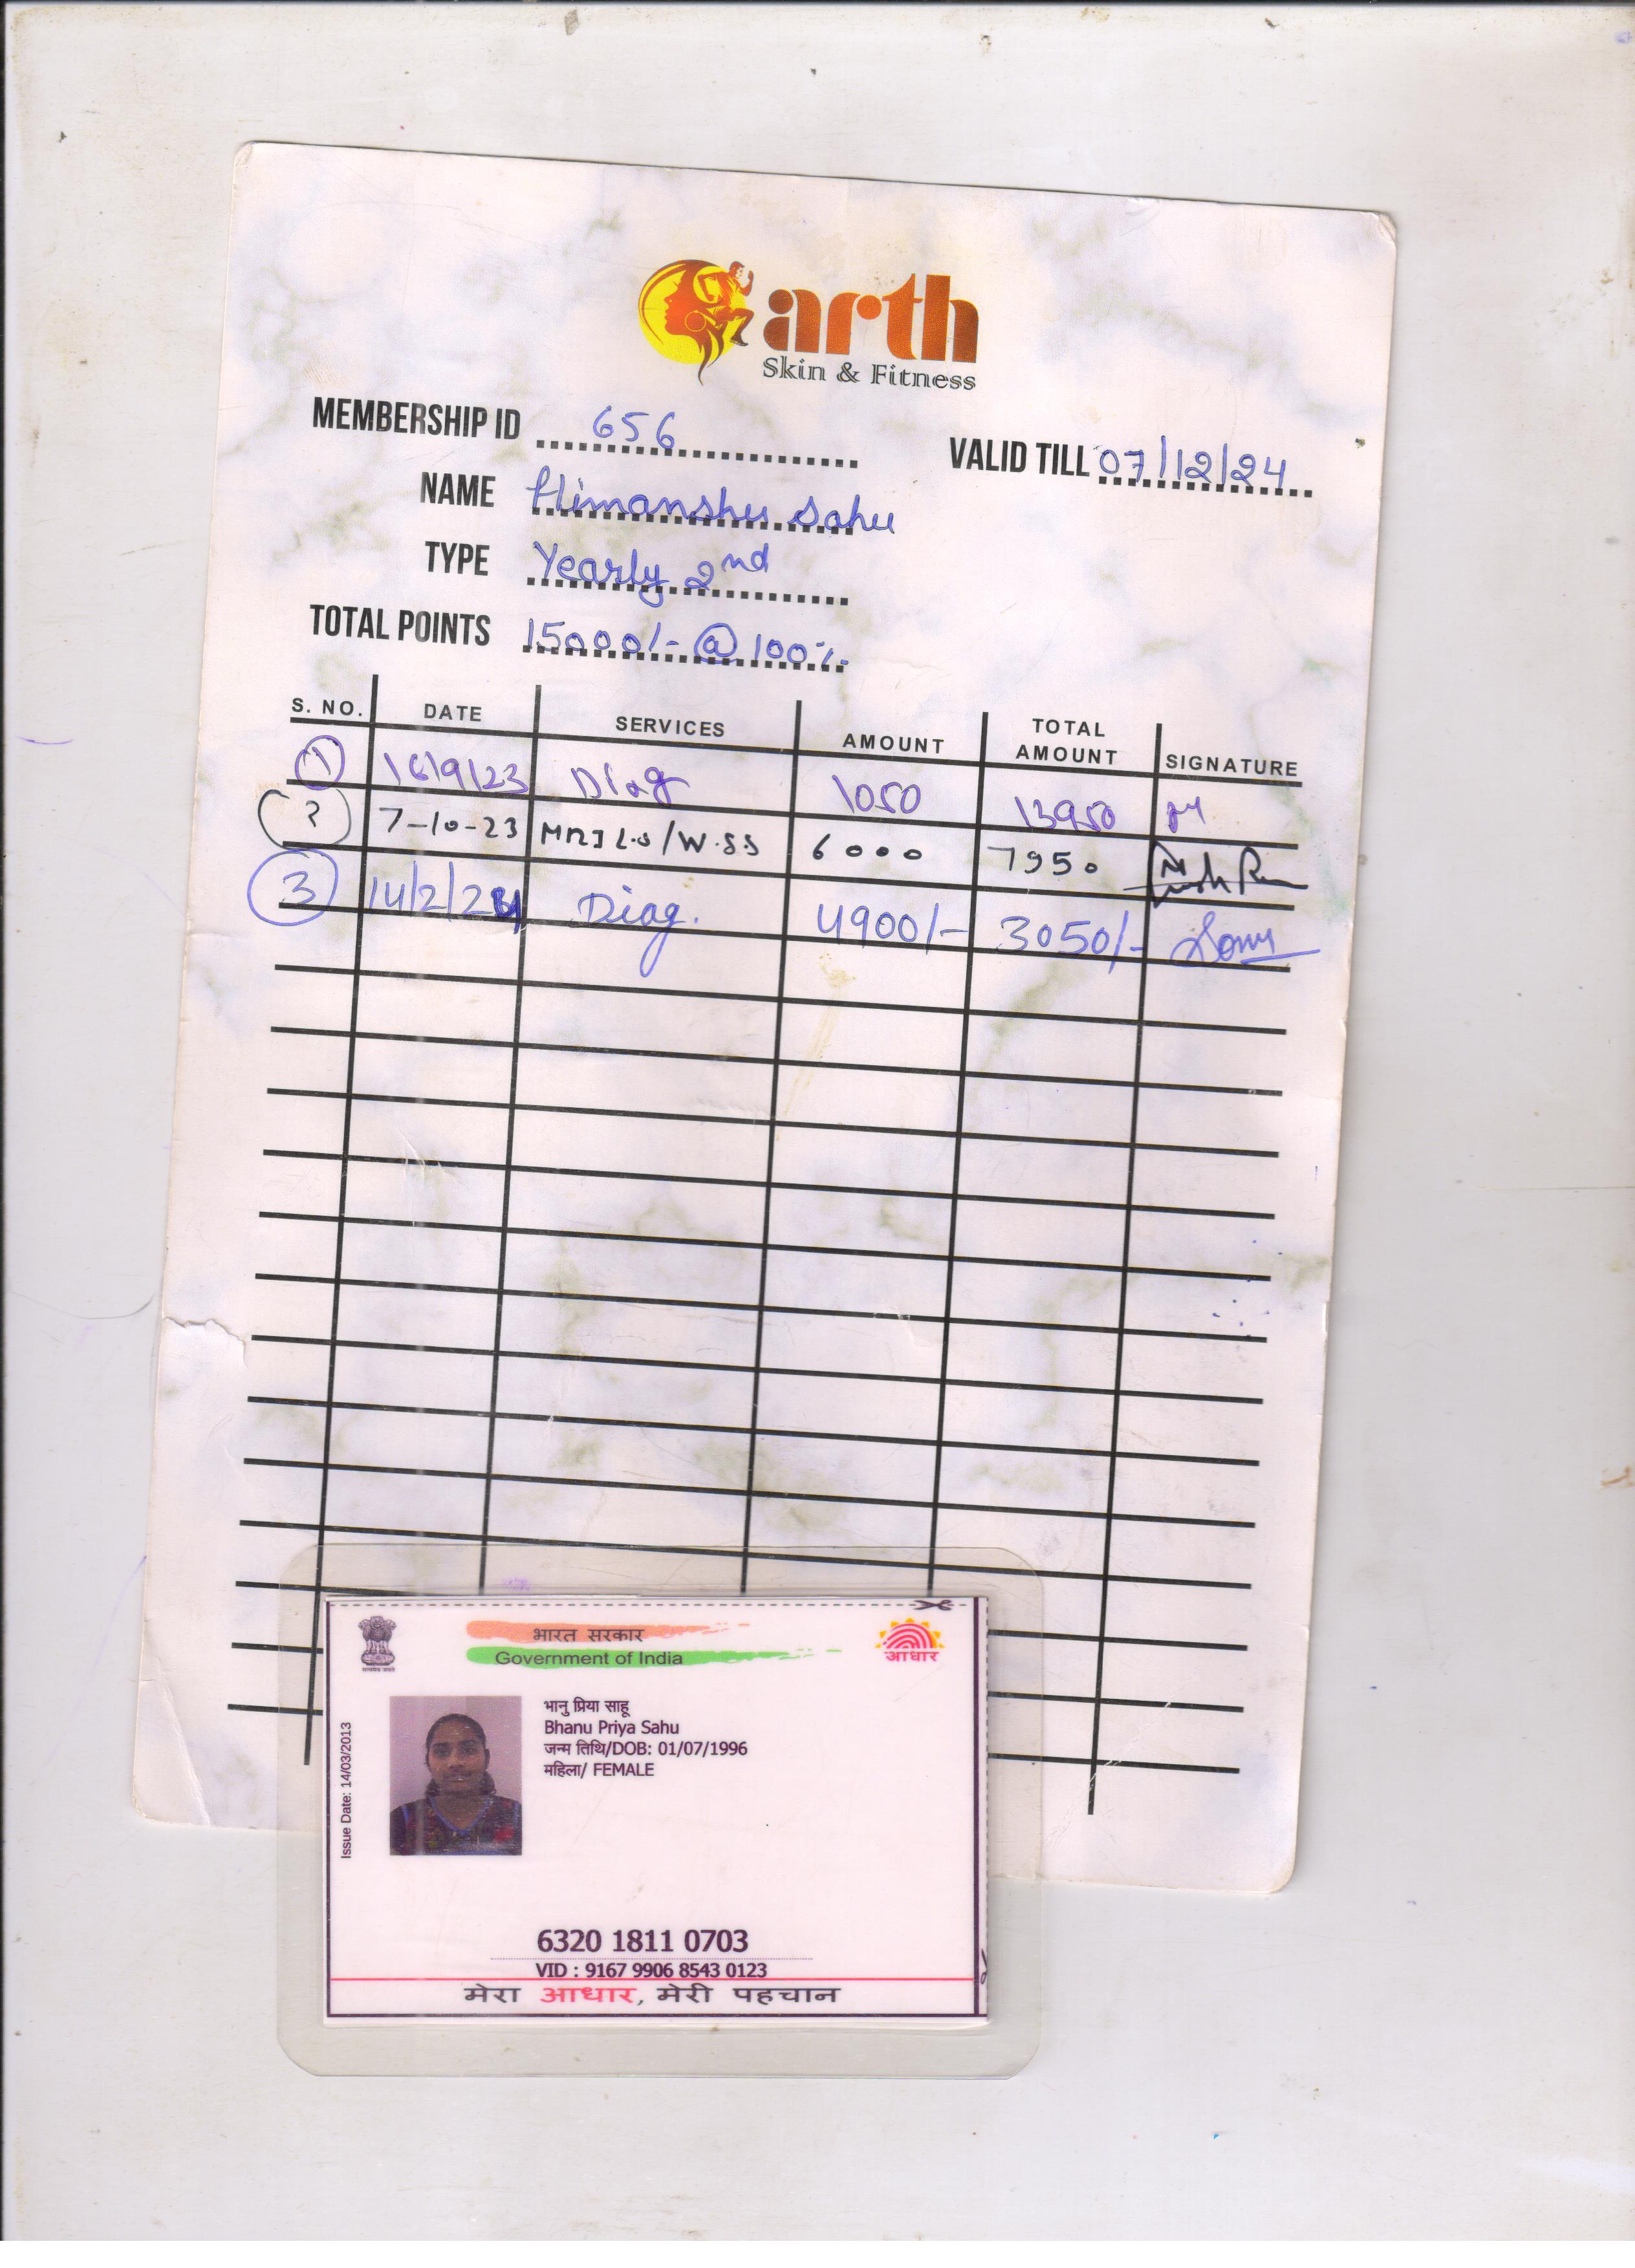 arth
Skin & Fitness
MEMBERSHIP ID 656
VALID TILL 07/12/24
NAME Himanshu Sahu
TYPE Yearly 2nd
TOTAL POINTS 15000/- @ 100%
S. NO. DATE SERVICES AMOUNT TOTAL AMOUNT SIGNATURE
1 16/9/23 Diag 1050 13950
2 7-10-23 MRI L.S / W.S.S 6000 7950
3 14/2/24 Diag. 4900/- 3050/- Sonu
भारत सरकार
Government of India
आधार
Issue Date: 14/03/2013
भानु प्रिया साहू
Bhanu Priya Sahu
जन्म तिथि/DOB: 01/07/1996
महिला/ FEMALE
6320 1811 0703
VID : 9167 9906 8543 0123
मेरा आधार, मेरी पहचान